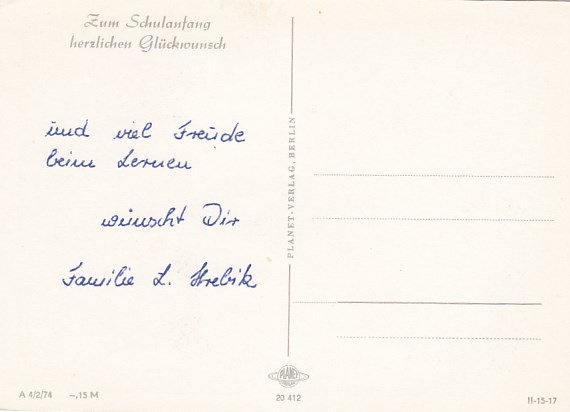 Zum Schulanfang
herzlichen Glückwunsch
und viel Freude
beim Lernen
wünscht Dir
Familie L. Strebik
PLANET-VERLAG, BERLIN
PLANET
A 4/2/74 -,15 M
20 412
II-15-17